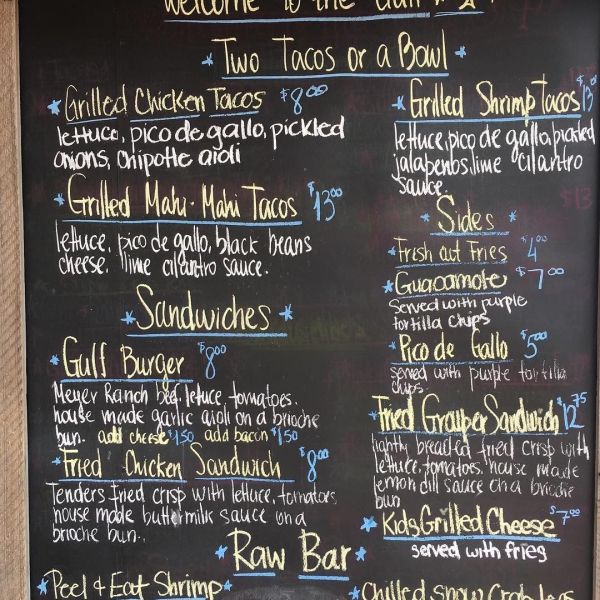 Welcome to the Gulf
Two Tacos or a Bowl
Grilled Chicken Tacos $8.00
lettuce, pico de gallo, pickled
onions, chipotle aioli
Grilled Mahi-Mahi Tacos $13.00
lettuce, pico de gallo, black beans
cheese. lime cilantro sauce.
Sandwiches
Gulf Burger $8.00
Meyer Ranch beef, lettuce, tomatoes.
house made garlic aioli on a brioche
bun. add cheese $1.50 add bacon $1.50
Fried Chicken Sandwich $8.00
Tenders fried crisp with lettuce, tomatoes,
house made buttermilk sauce on a
brioche bun.
Grilled Shrimp Tacos $13.00
lettuce, pico de gallo, pickled
jalapeños, lime cilantro
sauce.
Sides
Fresh cut Fries $4.00
Guacamole $7.00
served with purple
tortilla chips
Pico de Gallo $5.00
served with purple tortilla
chips
Fried Grouper Sandwich $12.75
lightly breaded fried crisp with
lettuce, tomatoes, house made
lemon dill sauce on a brioche
bun
Kids Grilled Cheese $7.00
served with fries
Raw Bar
Peel & Eat Shrimp
Chilled Snow Crab Legs